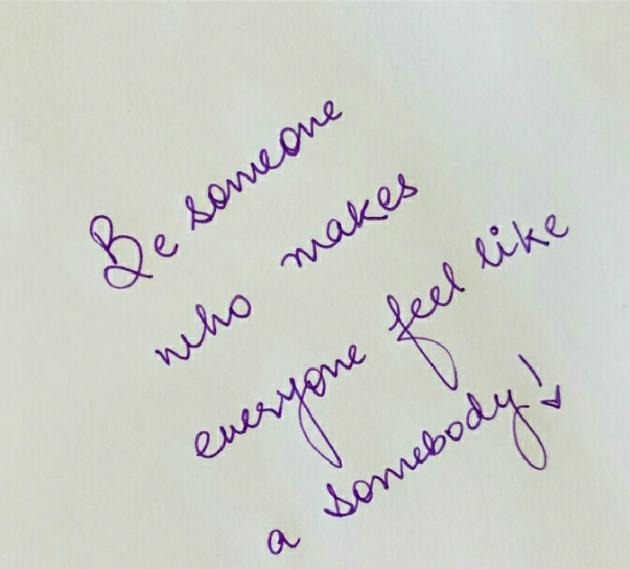 Be someone
who makes
everyone feel like
a somebody!